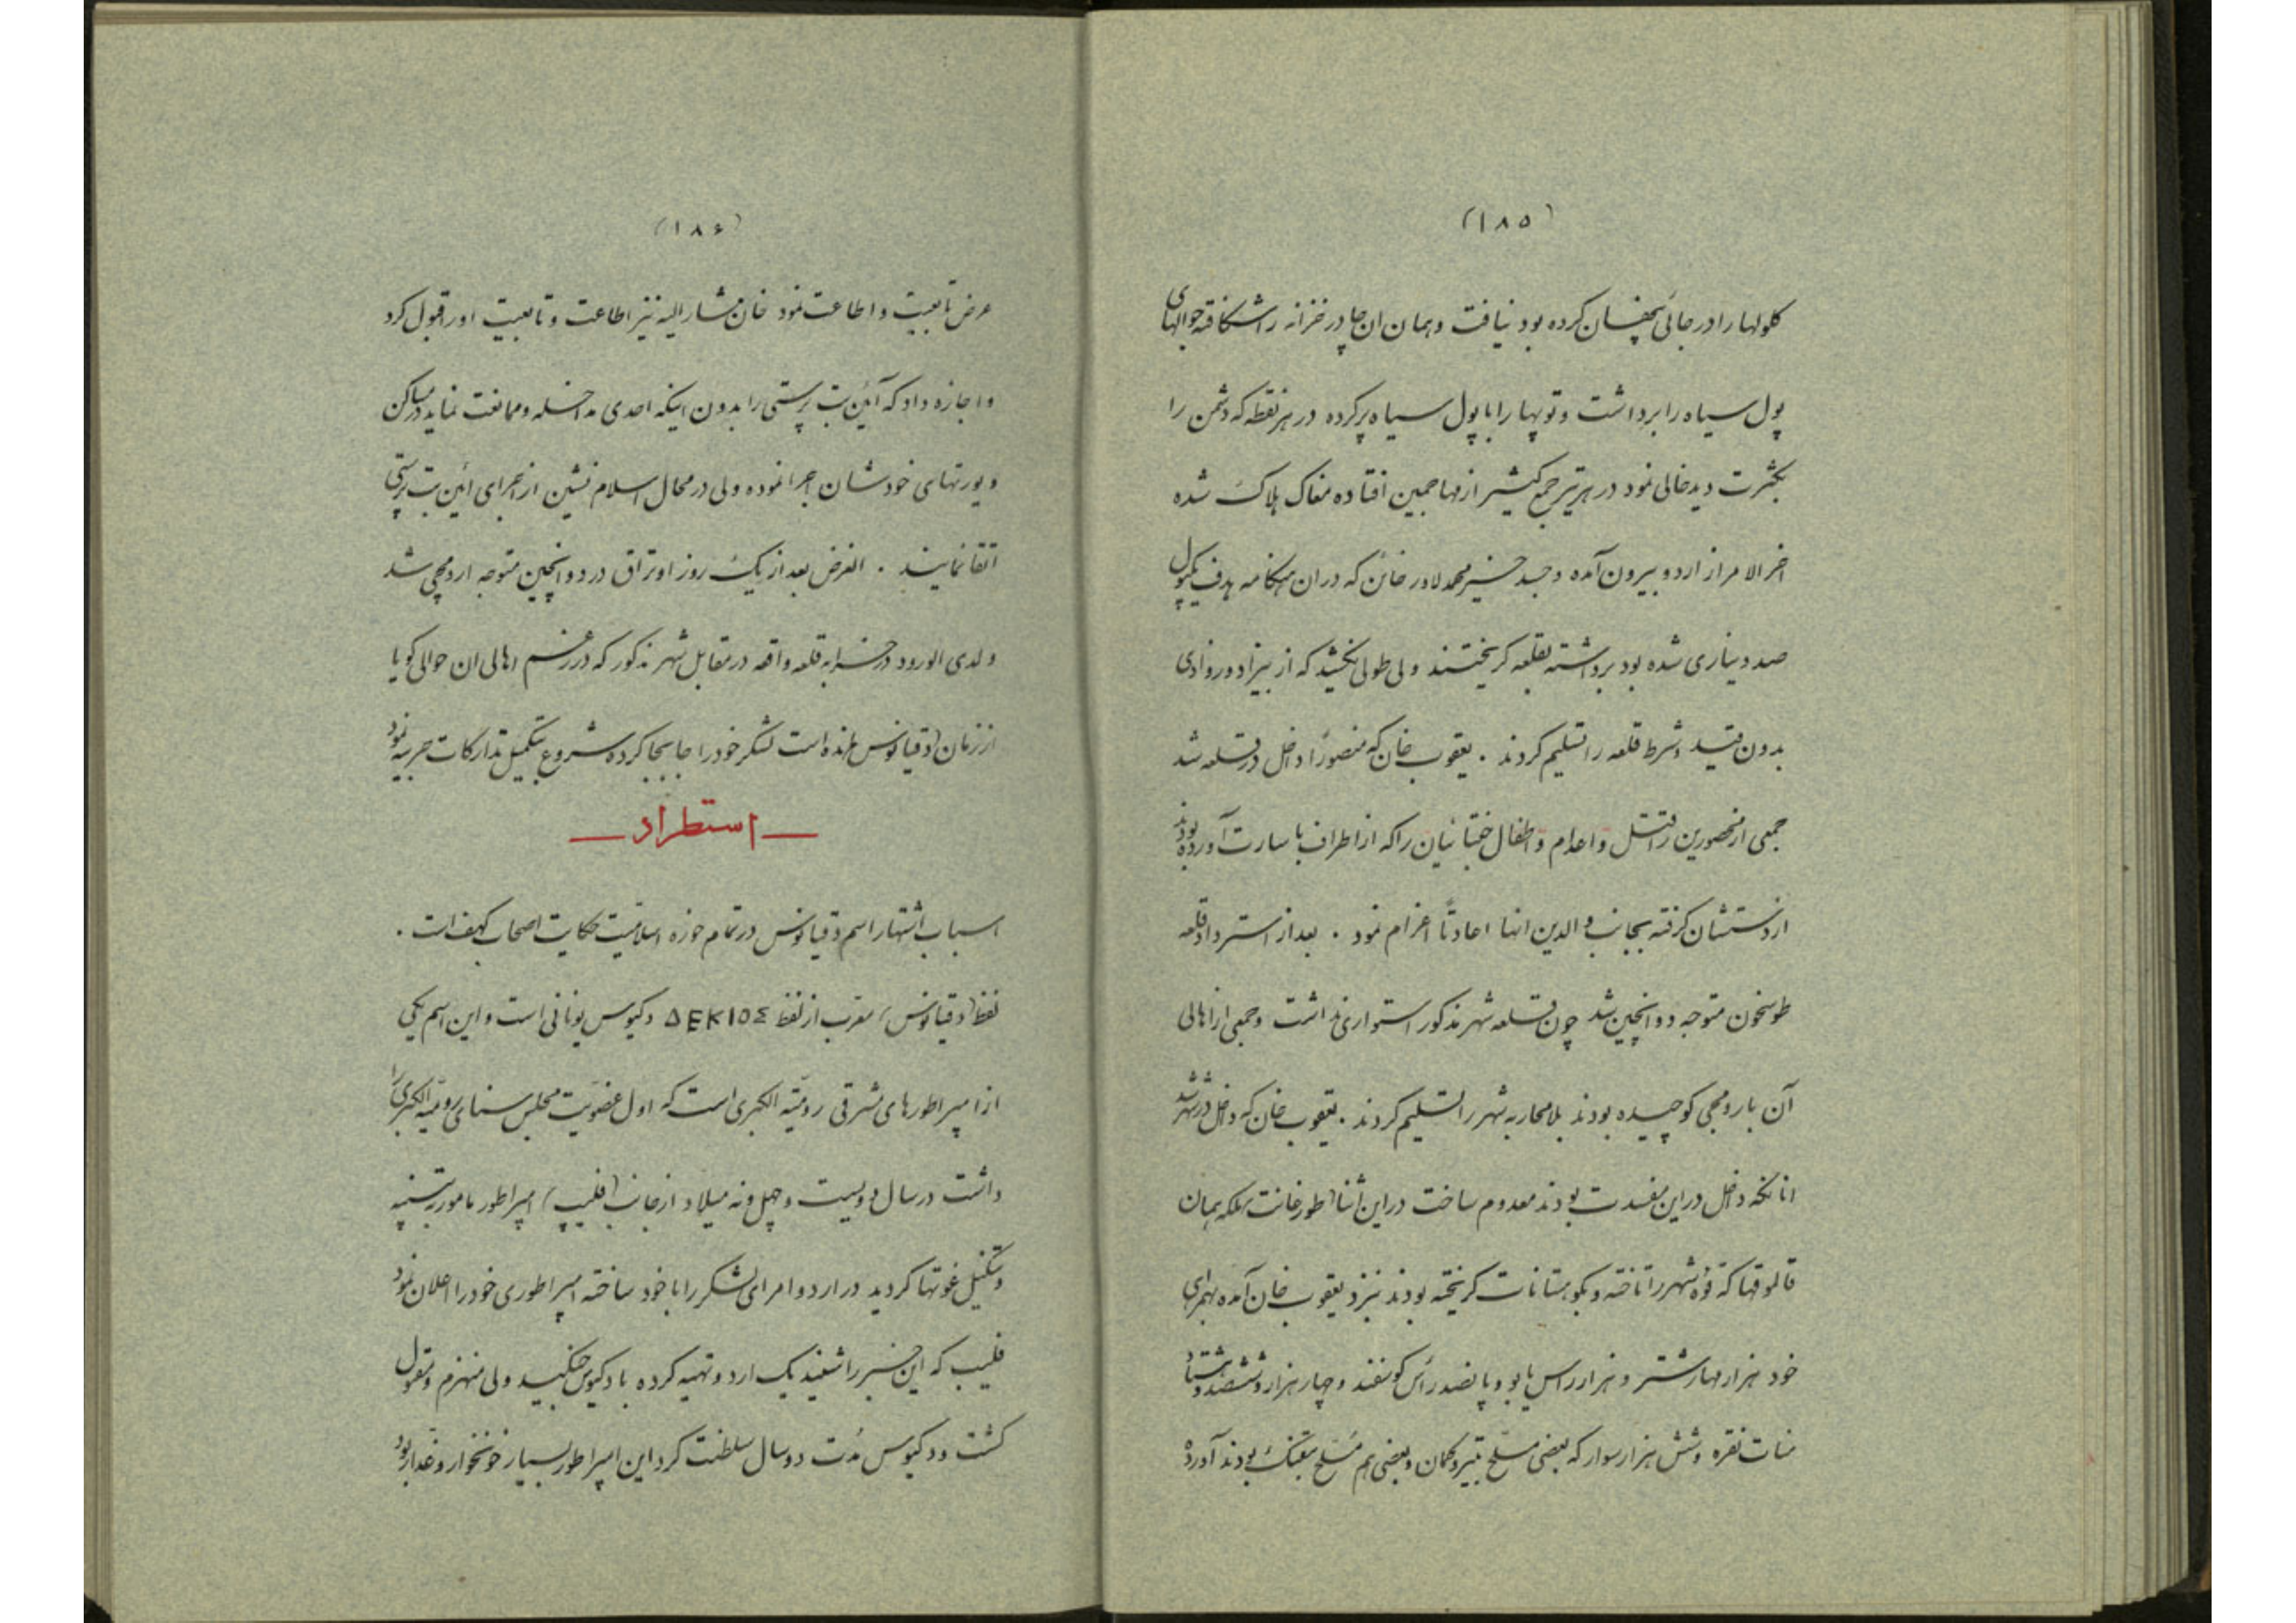 (۱۸۵)
کلولها را در جائی پنهان کرده بود نیافت و همان ان جا در خزانه را شکافته جوالهای
پول سیاه را برداشت و توپها را با پول سیاه پر کرده در هر نقطه که دشمن را
بکثرت دید خالی نمود در هر تیر جمع کثیر از مهاجمین افتاده مغاک هلاک شده
اخر الامر از اردو بیرون آمده و جسد محمد لادر خائن که در ان هنگامه هدف یکپول
صد دیناری شده بود برداشته بقلعه کریختند ولی طولی نکشید که از بیزاد و روادی
بدون قید و شرط قلعه را تسلیم کردند . یعقوب خان که منصورًا داخل در قلعه شد
جمعی از محصورین را قتل و اعدام و اطفال ختائیان را که از اطراف با سارت آورده بودند
از دستشان کرفته بجانب والدین انها اعادتًا اعزام نمود . بعد از استرداد قلعه
طوسخون متوجه دوانچین شد چون قلعه شهر مذکور استواری نداشت و جمعی از اهالی
آن بارومچی کوچیده بودند بلا محاربه شهر را تسلیم کردند . یعقوب خان که داخل در شهر شد
انانکه داخل در این مفسدت بودند معدوم ساخت در این اثنا طورغانت مهلکه همان
قالموقها که قره شهر را تاخته و بکوهستانات کریخته بودند بنزد یعقوب خان آمده بهمراهی
خود هزار مهار شتر و هزار راس یابو و پانصد رأس کوسفند و چهار هزار و ششصد و هشتاد
منات نقره و شش هزار سوار که بعضی مسلح بتیر و کمان و بعضی هم مسلح بتفنک بودند آورده
(۱۸۶)
عرض تابعیت و اطاعت نمود خان مشار الیه نیز اطاعت و تابعیت او را قبول کرد
و اجازه داد که آئین بت پرستی را بدون اینکه احدی مداخله و ممانعت نماید در مساکن
و یورتهای خودشان اجرا نموده ولی در محال اسلام نشین از اجرای ائین بت پرستی
اتقا نمایند . الغرض بعد از یک روز اوتراق در دوانچین متوجه ارومچی شد
و لدی الورود در خرابه قلعه واقعه در مقابل شهر مذکور که در زعم اهالی ان حوالی کویا
از زمان (دقیانوس) مانده است لشکر خود را جابجا کرده شروع بتکمیل تدارکات حربیه نمود
— استطراد —
اسباب اشتهار اسم دقیانوس در تمام حوزه اسلامیت حکایت اصحاب کهف است .
لفظ (دقیانوس) معرب از لفظ ΔΕΚΙΟΣ دکیوس یونانی است و این اسم یکی
از امپراطورهای مشرقی رومیّة الکبری است که اول عضویّت مجلس سنای رومیّة الکبری را
داشت در سال دویست و چهل و نه میلاد از جانب (فلیپ) امپراطور مامور به تنبیه
و تنکیل غوتها کردید در اردو امرای لشکر را با خود ساخته امپراطوری خود را اعلان نمود
فلیپ که این خبر را شنید یک اردو تهیه کرده با دکیوس جنکید ولی منهزم و مقتول
کشت و دکیوس مدّت دو سال سلطنت کرد این امپراطور بسیار خونخوار و غدّار بود